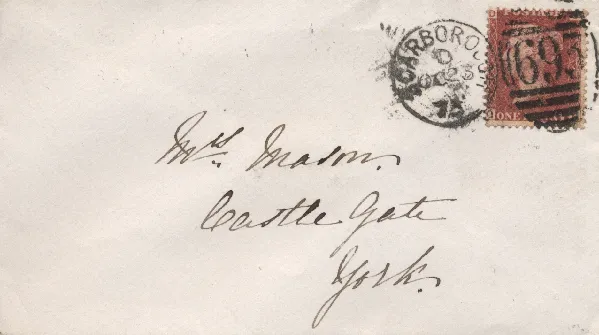 SCARBOROUGH
D
OC 23
75
695
ONE
Mrs. Mason.
Castle Gate
York.